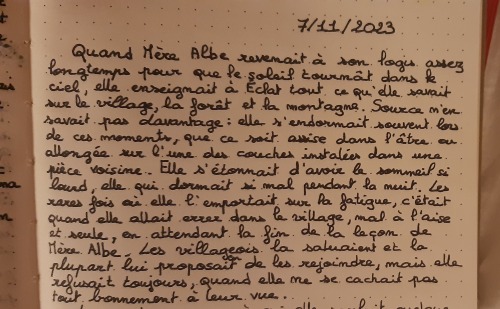 7/11/2023
Quand Mère Albe revenait à son logis assez
longtemps pour que le soleil tournât dans le
ciel, elle enseignait à Éclat tout ce qu'elle savait
sur le village, la forêt et la montagne. Source n'en
savait pas davantage : elle s'endormait souvent lors
de ces moments, que ce soit assise dans l'âtre ou
allongée sur l'une des couches instalées dans une
pièce voisine. Elle s'étonnait d'avoir le sommeil si
lourd, elle qui dormait si mal pendant la nuit. Les
rares fois où elle l'emportait sur la fatigue, c'était
quand elle allait errer dans le village, mal à l'aise
et seule, en attendant la fin de la leçon de
Mère Albe. Les villageois la saluaient et la
plupart lui proposait de les rejoindre, mais elle
refusait toujours, quand elle ne se cachait pas
tout bonnement à leur vue.